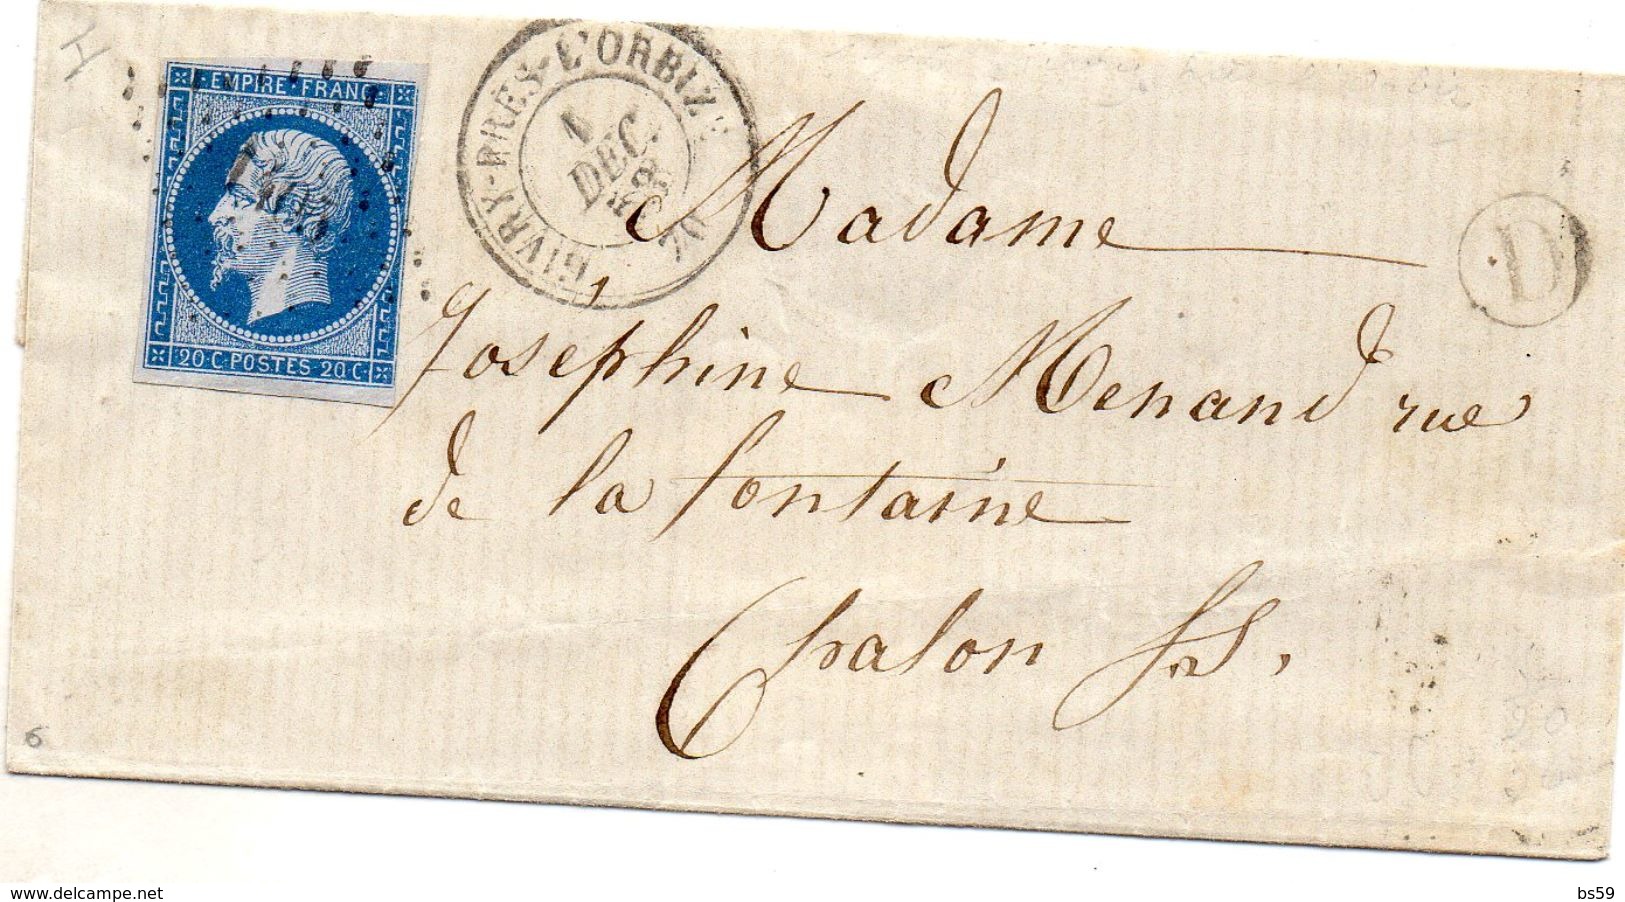 EMPIRE · FRANC ·
20 C · POSTES · 20 C ·
GIVRY-PRÈS-L'ORBIZE
DEC.
70
D
Madame
Joséphine Menand rue
de la fontaine
Chalon S/S.
6
www.delcampe.net
bs59